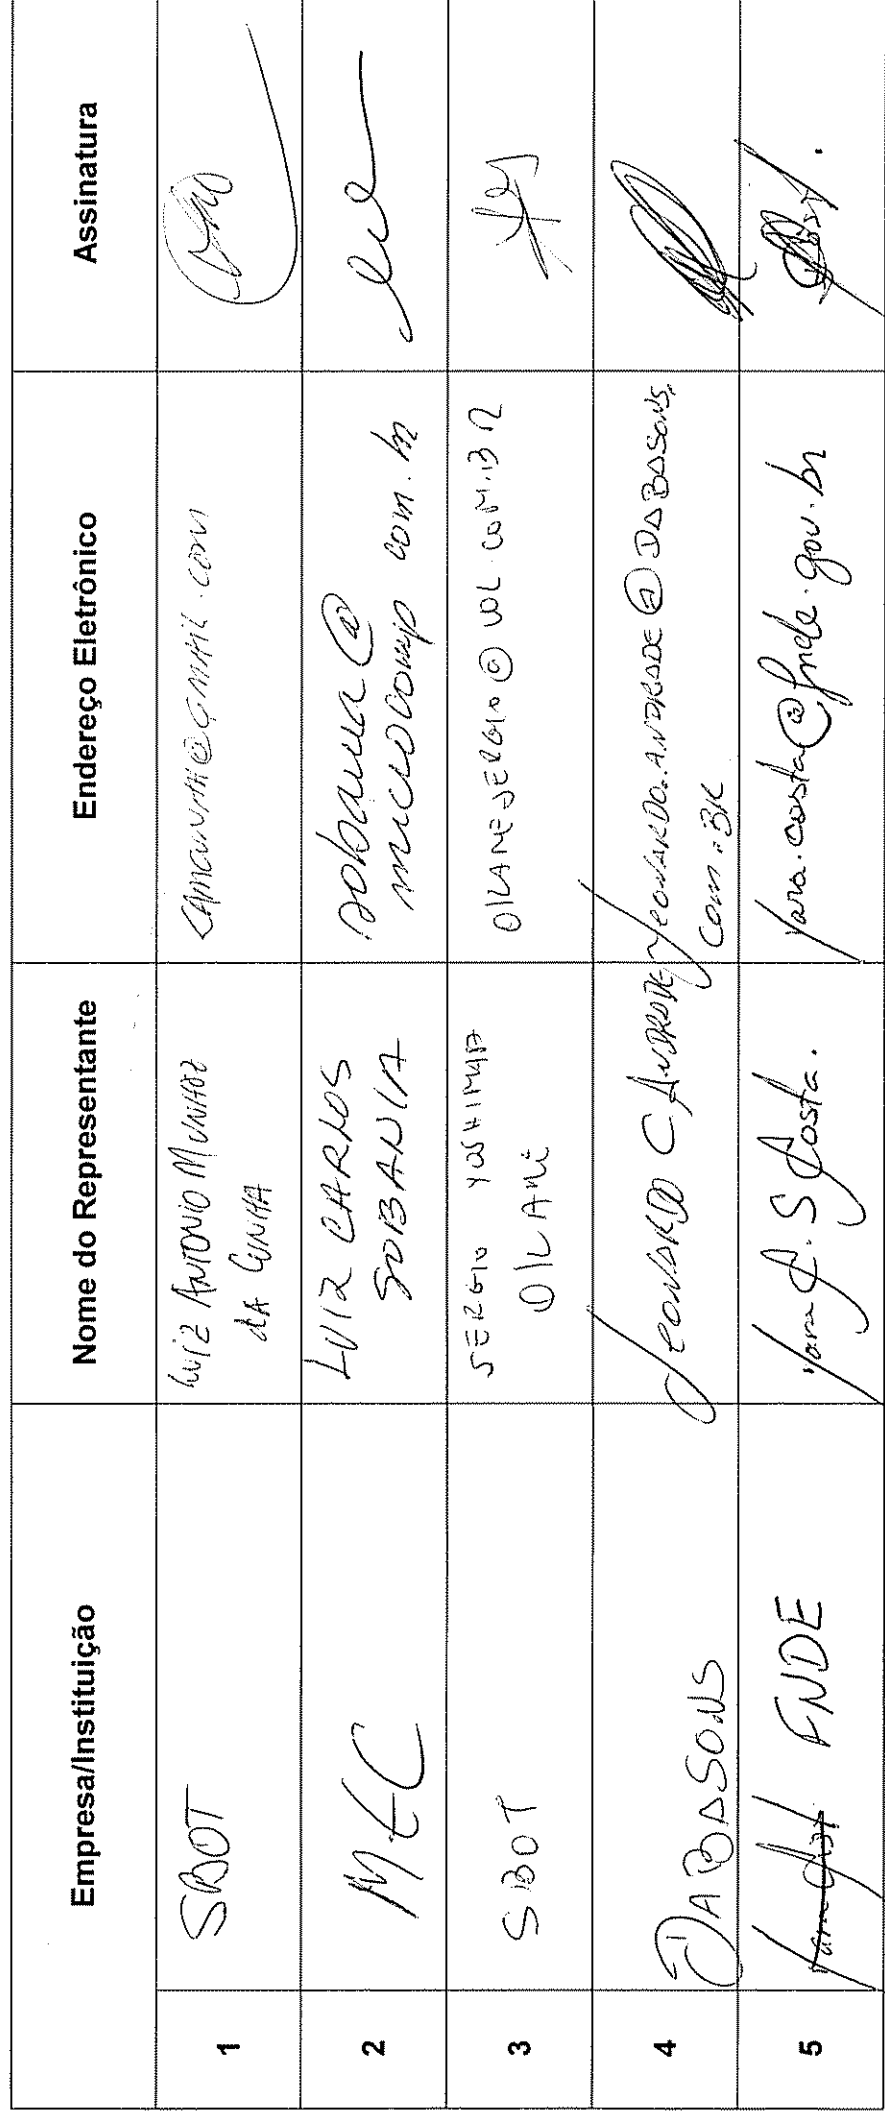 Empresa/Instituição Nome do Representante Endereço Eletrônico Assinatura
1 SBOT LUIZ ANTONIO MUNHOZ
DA CUNHA
2 MEC LUIZ CARLOS
SOBANIA sobania@
microcomp com.br
3 SBOT SERGIO YOSHIMASA
OKANE OKANESERGIO@UOL.COM.BR
4 DABASONS LEONARDO C ANDRADE LEONARDO.ANDRADE@DABASONS.
COM.BR
5 FNDE Yara C. S Costa. yara.costa@fnde.gov.br